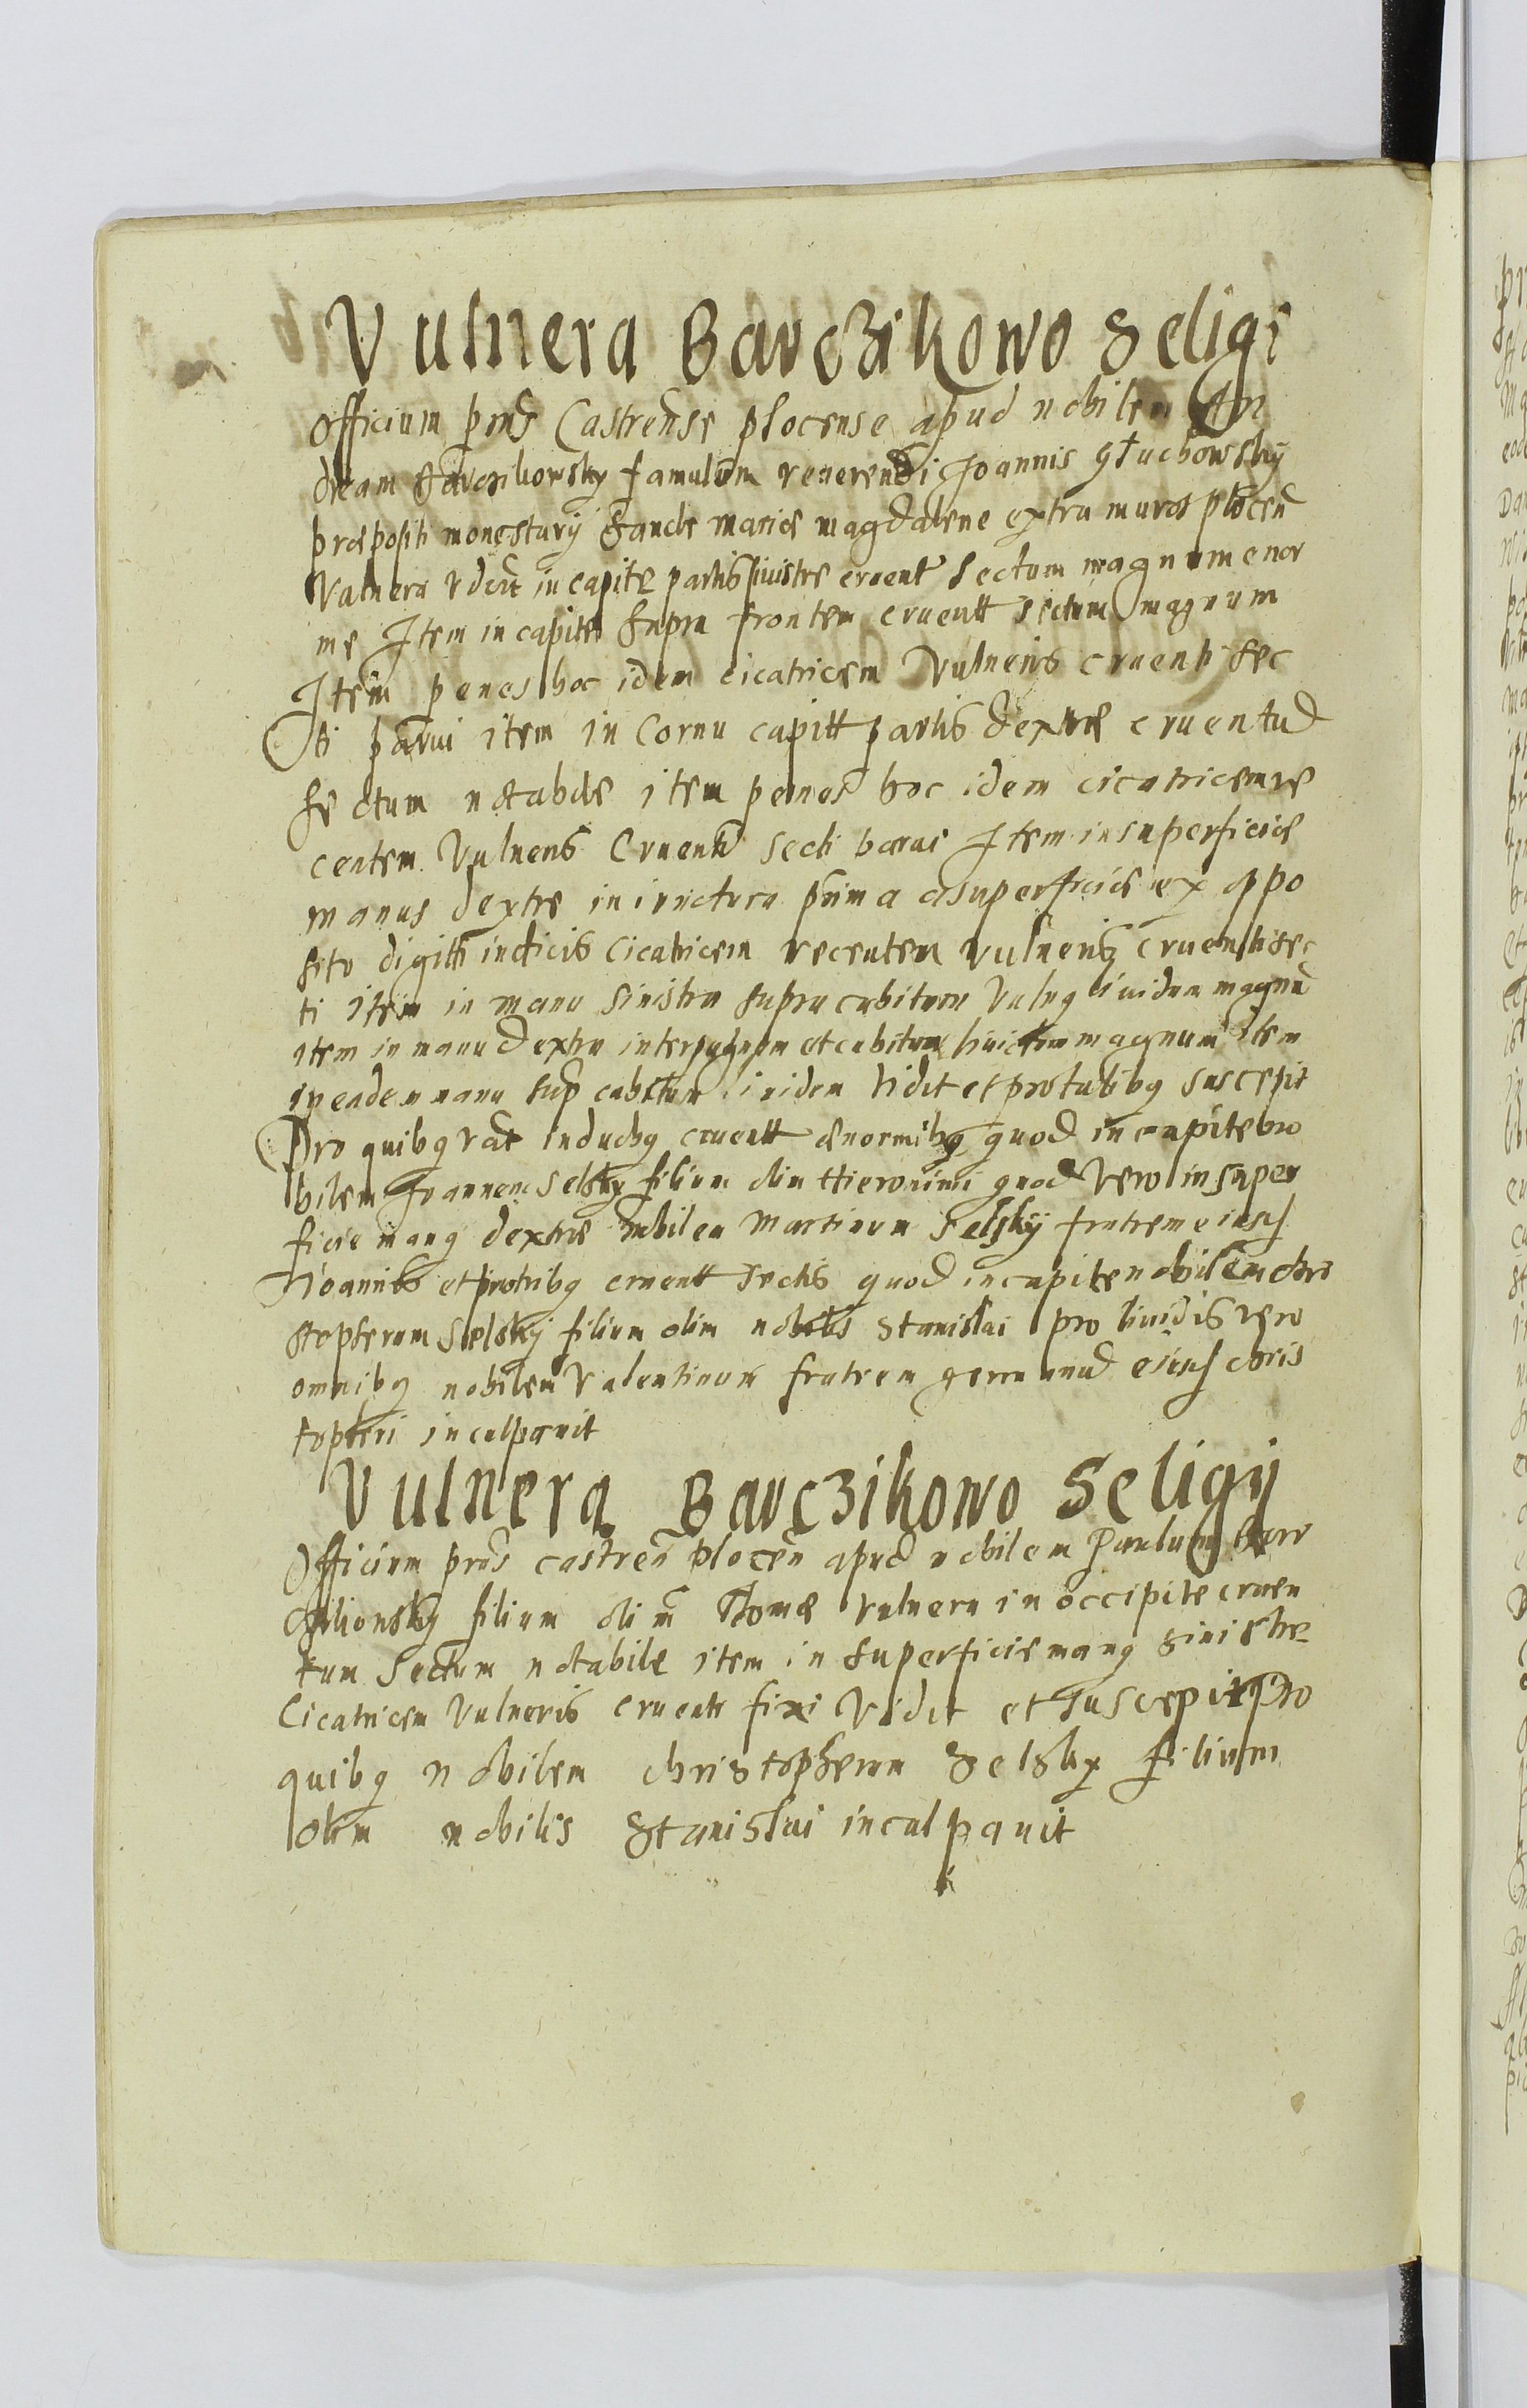 Vulnera Barczikowo Seligi
Officium pns Castrense plocense apud nobilem An
dream Barczikowsky famulum venerendi Joannis Głuchowsky
præpositi monestarij Sancte mariæ magdalene extra muros plocen
Vulnera vdeūt in capite partis sinistre cruent sectum magnum enor
me Item in capite supra frontem cruentt sectum magnum
Item penes hoc idem cicatricem Vulneris cruenti sec
ti parvi item in Cornu capitt partis dextræ cruentud
sectum notabile item penes hoc idem cicatricem re
centem Vulneris Cruenti secti Item in superficiæ
manus dextre in iunctura prima a superficiæ ex oppo
sito digitti indicis Cicatricem recentem vulneris cruenti sec
ti item in manu sinistra supra cubitum Vulnq lividum magnū
item in manu dextra inter pugnum et cubitum magnum Item
in eadem manu sup cubitum lividum vidit et pro talibq suscepit
Pro quibq cruentt ænormibq quod in capite no
bilem Joannem Selsky filium olim Hieronimi quod vero in super
ficie manq dextræ nobilem Martinum Selskij fratrem eiusd
Joannis et cruentt sectis quod in capite nobilem chri
stopferum Selskij filium olim nobilis Stanislai pro lividis vero
omnibq nobilem Valentinum fratrem germanud eiusd chris
topferi inculpavit
Vulnera Barczikowo Seligij
Officium prns castren plocen apud nobilem Paulum Bar
czikowsky filium olim Tomæ vulnera in occipite cruen
tum Sectum notabile item in superficie manq sinistre
Cicatricem Vulneris cruenti fixi Vidit et suscepit Pro
quibq nobilem christopferum Selsky filium
olim nobilis Stanislai inculpavit